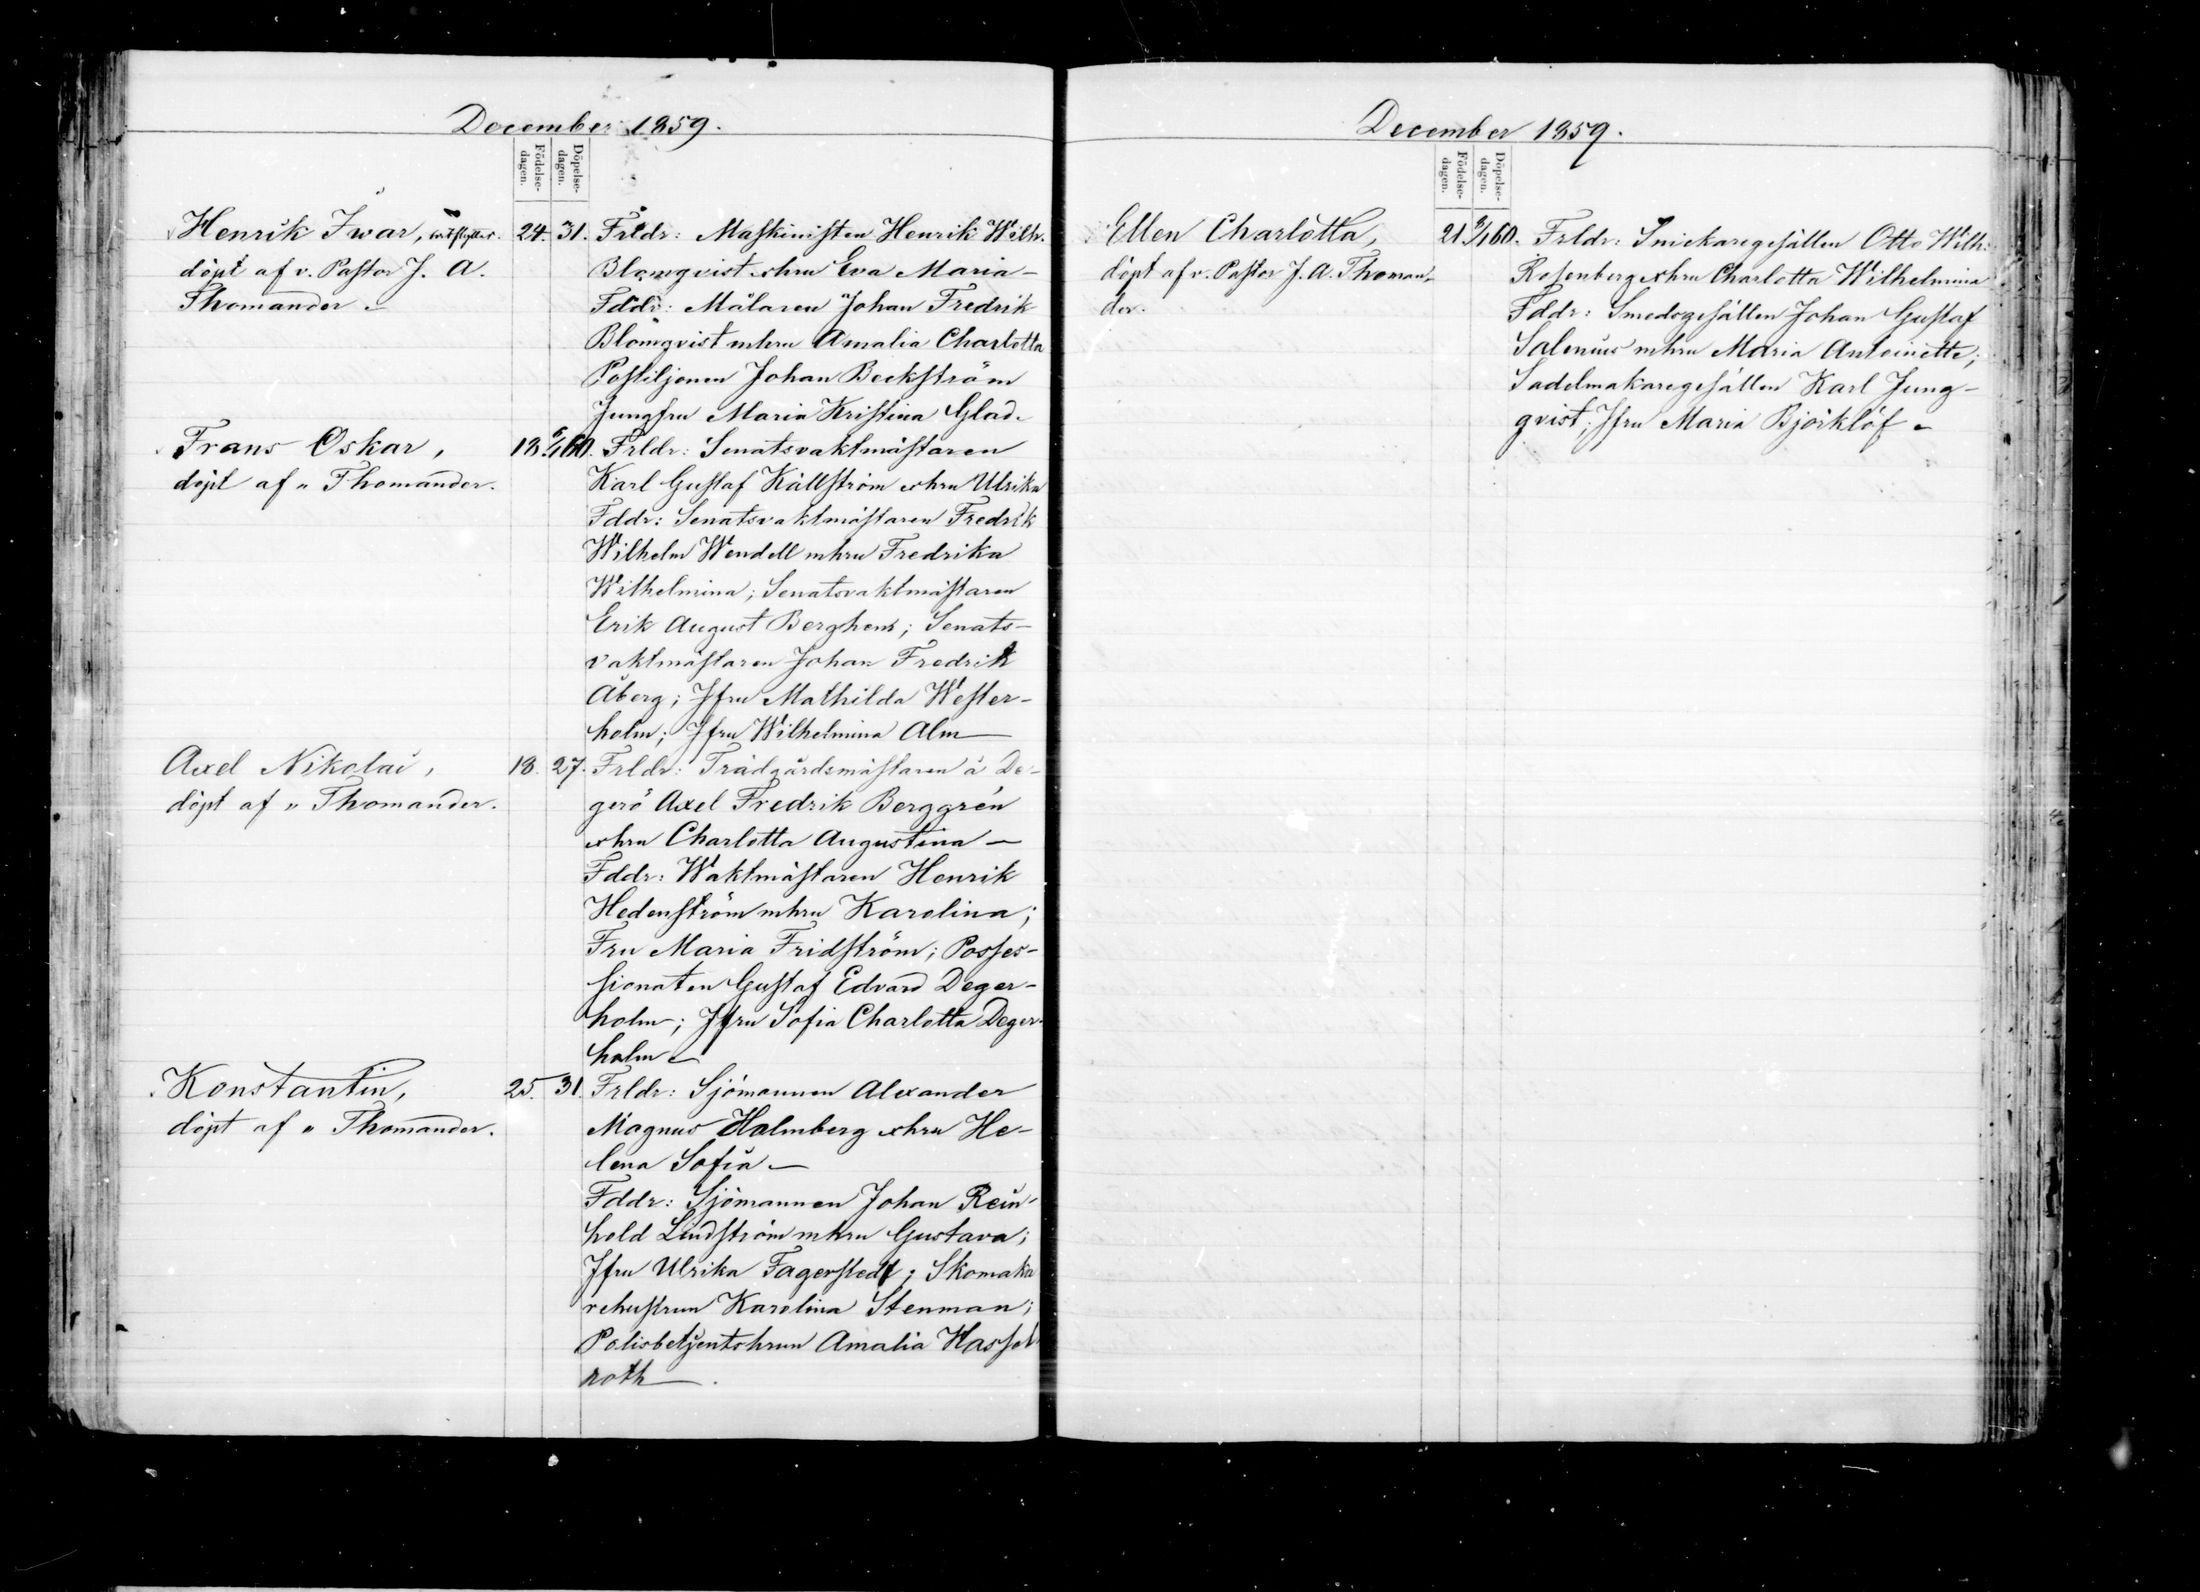 December 1859.
Födelse-dagen.
Döpelse-dagen.
Henrik Iwar, utflyttat. 24. 31. Frldr: Maskinisten Henrik Wilh.
döpt af v. Pastor J. A. Blomqvist o hru Eva Maria –
Thomander – Fddr: Målaren Johan Fredrik
Blomqvist m hru Amalia Charlotta
Postiljonen Johan Beckström
Jungfru Maria Kristina Glad.
Frans Oskar, 18 6/1 60. Frldr: Senatsvaktmästaren
döpt af " Thomander. Karl Gustaf Källström o hru Ulrika
Fddr: Senatsvaktmästaren Fredrik
Wilhelm Wendell m hru Fredrika
Wilhelmina; Senatsvaktmästaren
Erik August Berghem; Senats-
vaktmästaren Johan Fredrik
Åberg; Jfru Mathilda Wester-
holm; Jfru Wilhelmina Alm –
Axel Nikolai, 18. 27. Frldr: Trädgårdsmästaren å De-
döpt af " Thomander. gerö Axel Fredrik Berggrén
o hru Charlotta Augustina –
Fddr: Waktmästaren Henrik
Hedenström m hru Karolina;
Fru Maria Fridström; Posses-
sionaten Gustaf Edvard Deger-
holm; Jfru Sofia Charlotta Deger-
holm –
Konstantin, 25. 31. Frldr: Sjömannen Alexander
döpt af " Thomander. Magnus Holmberg o hru He-
lena Sofia –
Fddr: Sjömannen Johan Rein-
hold Lindström m hru Gustava;
Jfru Ulrika Fagerstedt; Skomaka
rehustrun Karolina Stenman;
Polisbetjentshrun Amalia Hassel
roth –.
December 1859.
Födelse-dagen.
Döpelse-dagen.
Ellen Charlotta, 21. /1 60. Frldr: Snickaregesällen Otto Wilh.
döpt af v. Pastor J. A. Thoman- Rosenberg o hru Charlotta Wilhelmina
der. Fddr: Smedsgesällen Johan Gustaf
Salenius m hru Maria Antoinette;
Sadelmakaregesällen Karl Jung-
qvist; Jfru Maria Björklöf –